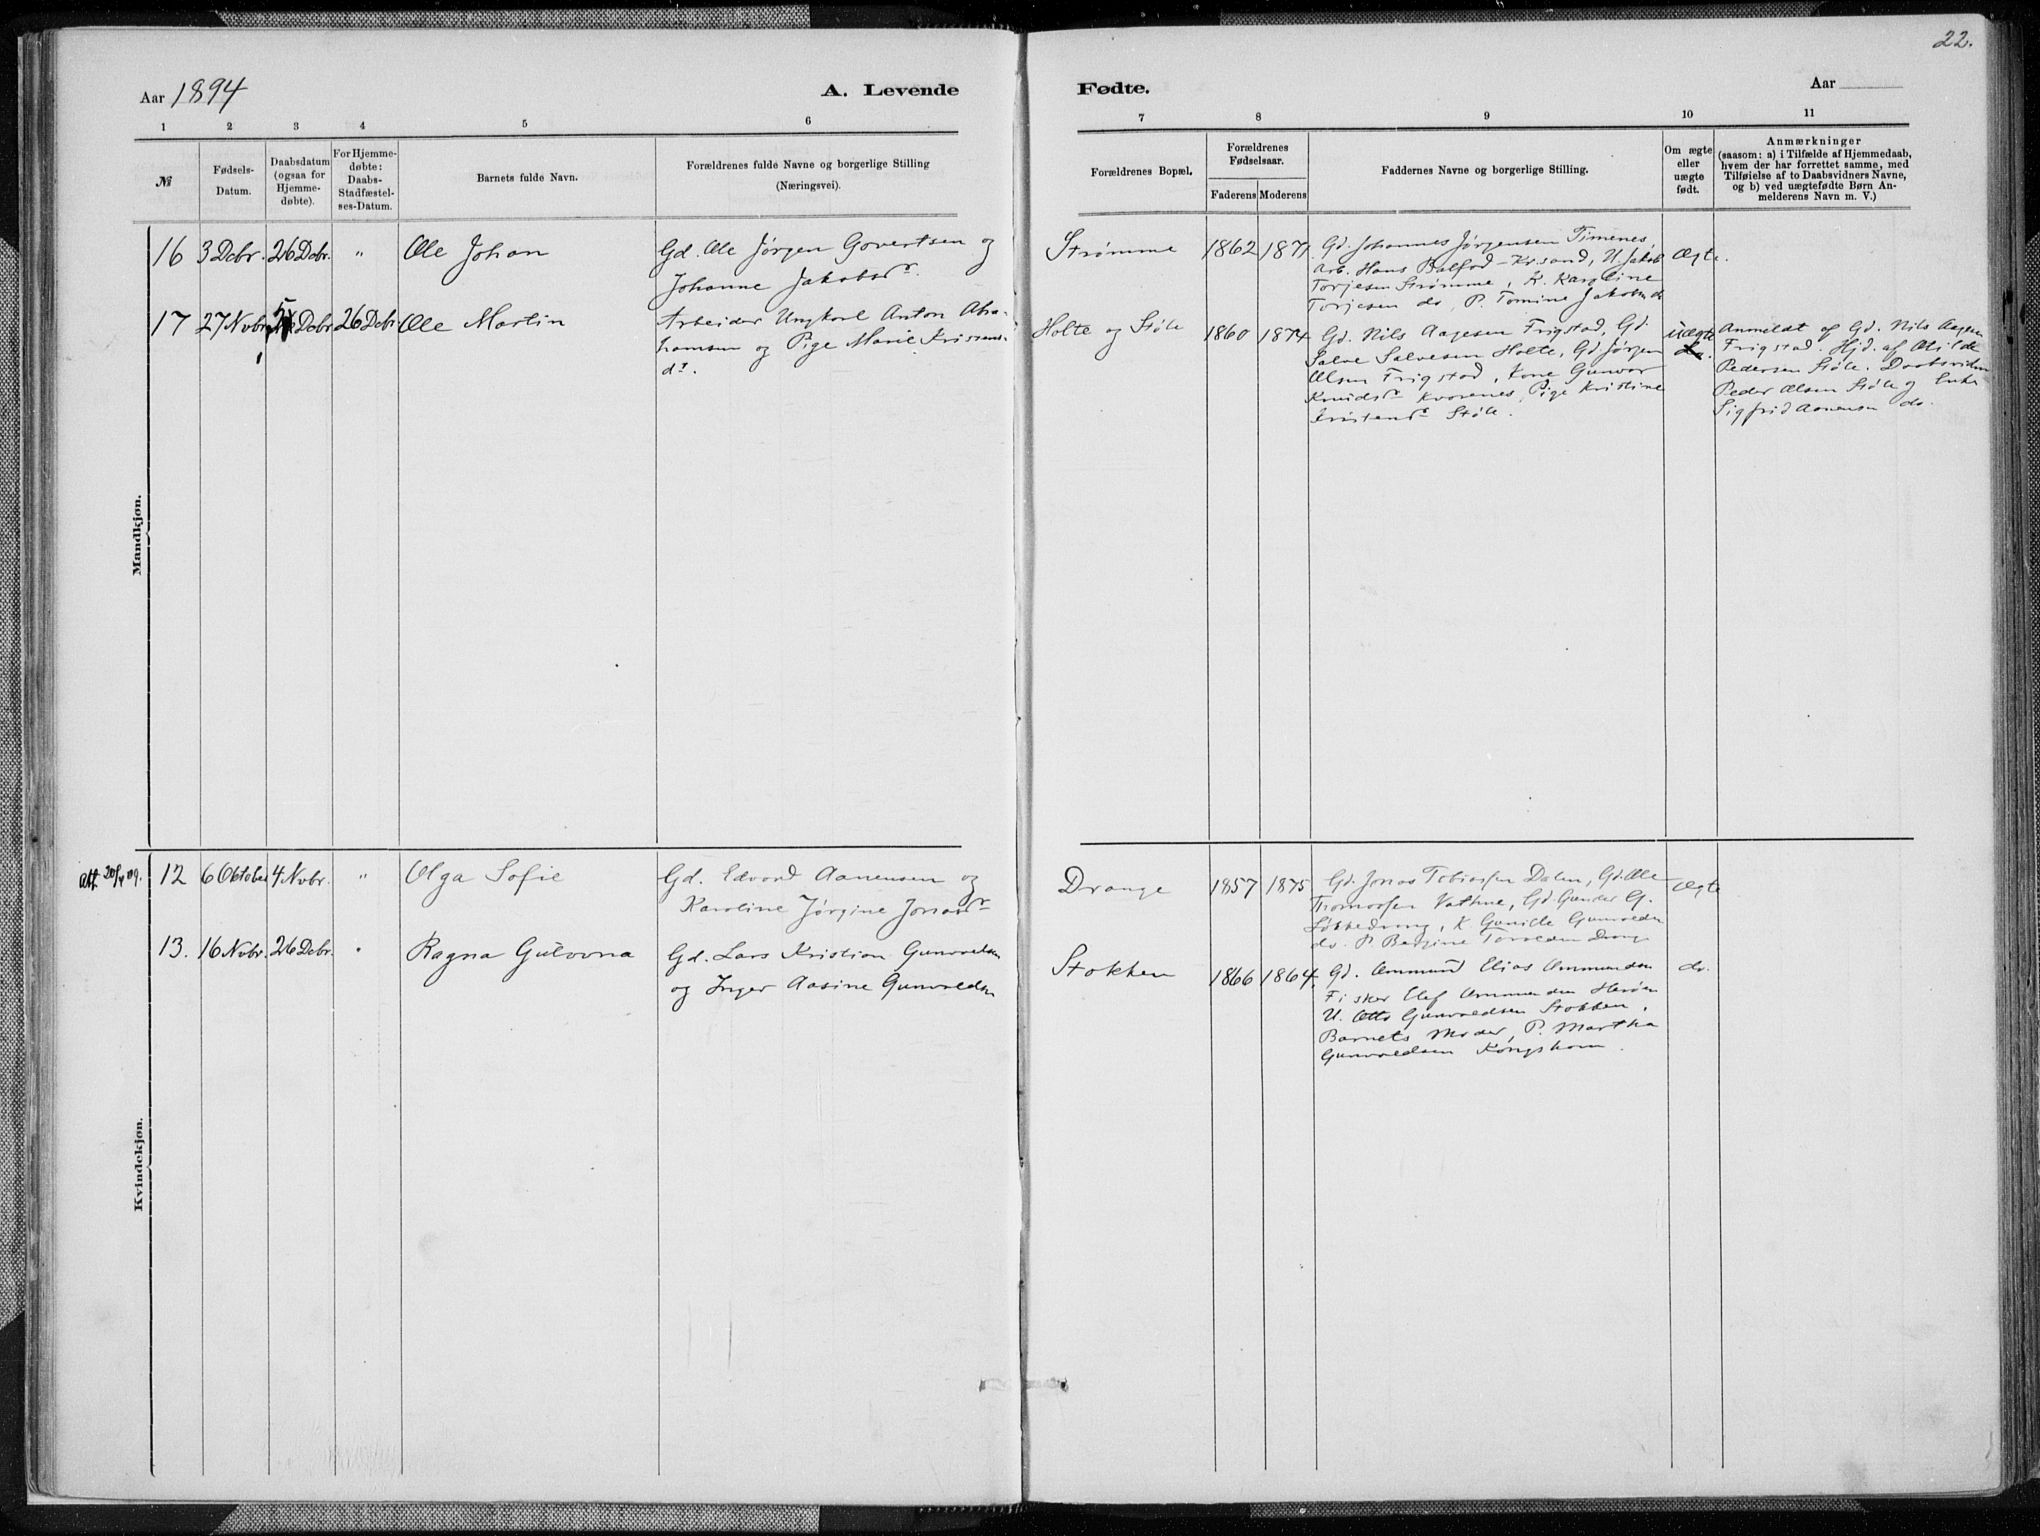 22.
Aar 1894
A. Levende
Fødte.
Aar
1 2 3 4 5 6
7 8 9 10 11
№
Fødsels-
Datum.
Daabsdatum
(ogsaa for
Hjemme-
døbte).
For Hjemme-
døbte:
Daabs-
Stadfæstel-
ses-Datum.
Barnets fulde Navn.
Forældrenes fulde Navne og borgerlige Stilling
(Næringsvei).
Forældrenes Bopæl.
Forældrenes
Fødselsaar.
Faderens Moderens
Faddernes Navne og borgerlige Stilling.
Om ægte
eller
uægte
født.
Anmærkninger
(saasom: a) i Tilfælde af Hjemmedaab,
hvem der har forrettet samme, med
Tilføielse af to Daabsvidners Navne,
og b) ved uægtefødte Børn An-
melderens Navn m. V.)
Mandkjøn.
16 3 Dcbr. 26 Dcbr. " Ole Johan
Gd. Ole Jørgen Govertsen og
Johanne Jakobsdr.
Strømme 1862 1871
Gd. Johannes Jørgensen Timenes,
Arb. Hans Balfod - Kr.sand, U. Jakob
Torjesen Strømme, K. Karoline
Torjesen do, P. Tomine Jakobsdr
Ægte.
17 27 Nvbr. 5 Dcbr 26 Dcbr Ole Martin
Arbeider Ungkarl Anton Abra-
hamsen og Pige Marie Kristens-
dr.
Holte og Støle 1860 1874
Gd. Nils Aagesen Frigstad, Gd.
Salve Salvesen Holte, Gd Jørgen
Olsen Frigstad, Kone Gunvor
Knudsdr Kvarenes, Pige Kristine
Kristensdr Støle.
uægte
do.
Anmeldt af Gd. Nils Aagesen
Frigstad. Hjd. af Otilde
Pedersen Støle. Daabsvidner
Peder Olsen Støle og Enke
Sigfrid Aanensen do.
Kvindekjøn.
Att 20/4 09.
12 6 October 4 Nvbr. " Olga Sofie
Gd. Edvard Aanensen og
Karoline Jørgine Jonasdr
Drange 1857 1875
Gd. Jonas Tobiassen Dalen, Gd. Ole
Thomassen Vatne, Gd Gunder G.
K. Gunille Gunvaldsen
do. P. Bergine
Ægte
13. 16 Nvbr. 26 Dcbr. " Ragna Gulovna
Gd. Lars Kristian Gunvaldsen
og Inger Aasine Gunvaldsen
Stokken 1866 1864.
Gd. Ammund Elias Ammundsen
Fisker Olaf Ammundsen Herøen
U. Otto Gunvaldsen Stokken,
Barnets Moder, P. Martha
Gunvaldsen Kongshavn.
do.